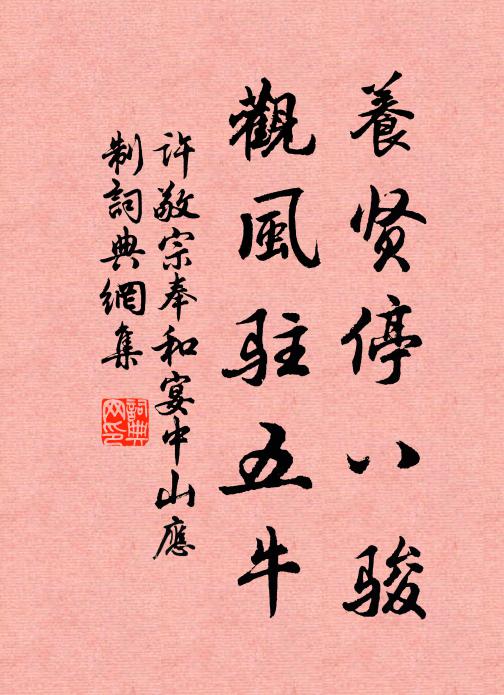 養贤停八骏
觀風駐五牛
许敬宗奉和宴中山應
制詞典網集
詞典
网印